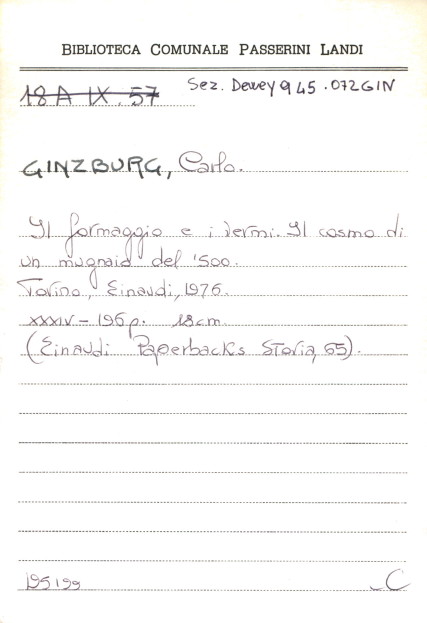 BIBLIOTECA COMUNALE PASSERINI LANDI
18 A IX. 57 Sez. Dewey 945.072 GIN
GINZBURG, Carlo.
Il formaggio e i vermi. Il cosmo di
un mugnaio del '500.
Torino, Einaudi, 1976.
XXXIV - 196 p. 18 cm.
(Einaudi Paperbacks Storia, 65).
195199 C